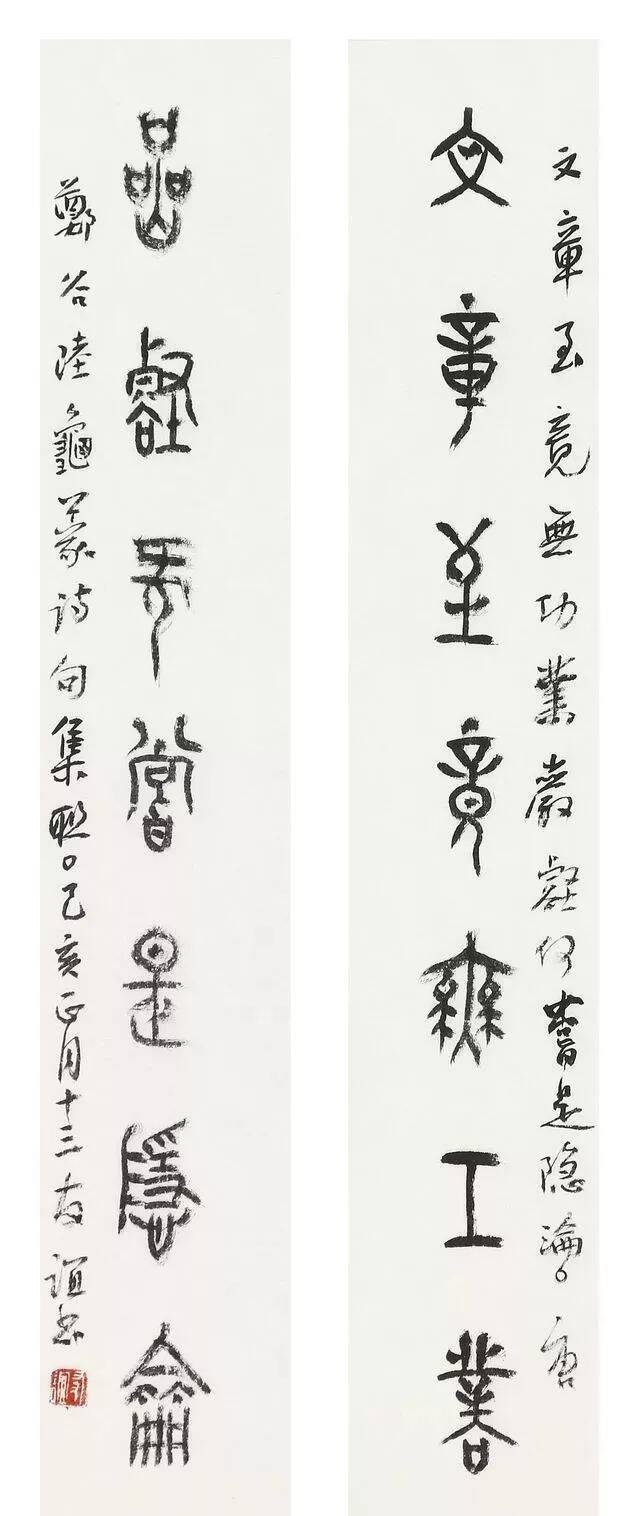 文章至竟無功業巖壑何嘗是隱淪。唐
文章至竟無工業
嵒壑何嘗是隱侖
鄭谷陸龜蒙詩句集聯。己亥正月十三友誼書